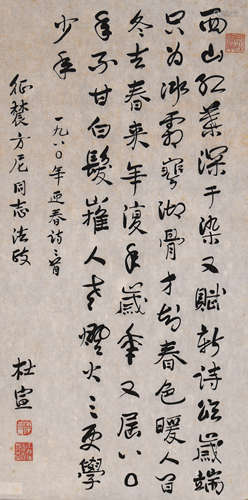 西山红叶深于染又赋新诗颂岁端
只为冰霜 骨才知春色暖人间
冬去春来年复年岁华又届八〇
年不甘白发催人老灯火三更学
少年
一九八〇年迎春诗一首
征农方尼同志法政
杜宣